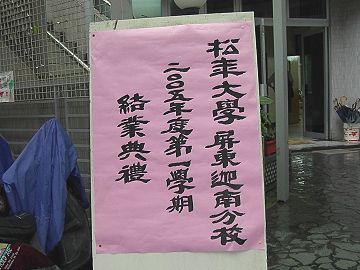 松年大學屏東迦南分校
二００五年度第一學期
結業典禮